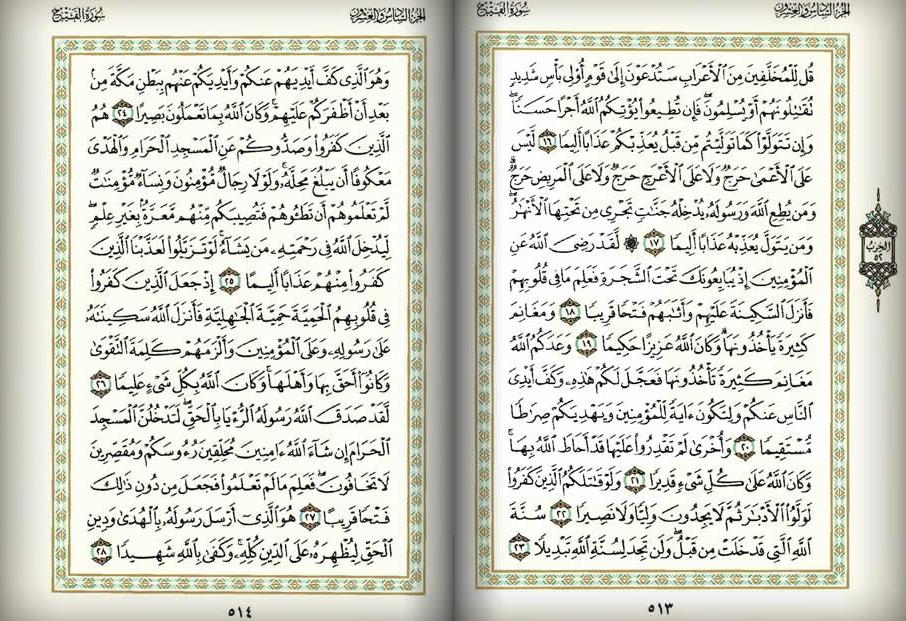 الجزء السادس والعشرون
سورة الفتح
قُل لِّلْمُخَلَّفِينَ مِنَ ٱلْأَعْرَابِ سَتُدْعَوْنَ إِلَىٰ قَوْمٍ أُو۟لِى بَأْسٍ شَدِيدٍ
تُقَٰتِلُونَهُمْ أَوْ يُسْلِمُونَ ۖ فَإِن تُطِيعُوا۟ يُؤْتِكُمُ ٱللَّهُ أَجْرًا حَسَنًا ۖ
وَإِن تَتَوَلَّوْا۟ كَمَا تَوَلَّيْتُم مِّن قَبْلُ يُعَذِّبْكُمْ عَذَابًا أَلِيمًا ١٦ لَّيْسَ
عَلَى ٱلْأَعْمَىٰ حَرَجٌ وَلَا عَلَى ٱلْأَعْرَجِ حَرَجٌ وَلَا عَلَى ٱلْمَرِيضِ حَرَجٌ ۗ
وَمَن يُطِعِ ٱللَّهَ وَرَسُولَهُۥ يُدْخِلْهُ جَنَّٰتٍ تَجْرِى مِن تَحْتِهَا ٱلْأَنْهَٰرُ ۖ
وَمَن يَتَوَلَّ يُعَذِّبْهُ عَذَابًا أَلِيمًا ١٧ ۞ لَّقَدْ رَضِىَ ٱللَّهُ عَنِ
ٱلْمُؤْمِنِينَ إِذْ يُبَايِعُونَكَ تَحْتَ ٱلشَّجَرَةِ فَعَلِمَ مَا فِى قُلُوبِهِمْ
فَأَنزَلَ ٱلسَّكِينَةَ عَلَيْهِمْ وَأَثَٰبَهُمْ فَتْحًا قَرِيبًا ١٨ وَمَغَانِمَ
كَثِيرَةً يَأْخُذُونَهَا ۗ وَكَانَ ٱللَّهُ عَزِيزًا حَكِيمًا ١٩ وَعَدَكُمُ ٱللَّهُ
مَغَانِمَ كَثِيرَةً تَأْخُذُونَهَا فَعَجَّلَ لَكُمْ هَٰذِهِۦ وَكَفَّ أَيْدِىَ
ٱلنَّاسِ عَنكُمْ وَلِتَكُونَ ءَايَةً لِّلْمُؤْمِنِينَ وَيَهْدِيَكُمْ صِرَٰطًا
مُّسْتَقِيمًا ٢٠ وَأُخْرَىٰ لَمْ تَقْدِرُوا۟ عَلَيْهَا قَدْ أَحَاطَ ٱللَّهُ بِهَا ۚ
وَكَانَ ٱللَّهُ عَلَىٰ كُلِّ شَىْءٍ قَدِيرًا ٢١ وَلَوْ قَٰتَلَكُمُ ٱلَّذِينَ كَفَرُوا۟
لَوَلَّوُا۟ ٱلْأَدْبَٰرَ ثُمَّ لَا يَجِدُونَ وَلِيًّا وَلَا نَصِيرًا ٢٢ سُنَّةَ
ٱللَّهِ ٱلَّتِى قَدْ خَلَتْ مِن قَبْلُ ۖ وَلَن تَجِدَ لِسُنَّةِ ٱللَّهِ تَبْدِيلًا ٢٣
الحزب
٥٢
٥١٣
الجزء السادس والعشرون
سورة الفتح
وَهُوَ ٱلَّذِى كَفَّ أَيْدِيَهُمْ عَنكُمْ وَأَيْدِيَكُمْ عَنْهُم بِبَطْنِ مَكَّةَ مِنۢ
بَعْدِ أَنْ أَظْفَرَكُمْ عَلَيْهِمْ ۚ وَكَانَ ٱللَّهُ بِمَا تَعْمَلُونَ بَصِيرًا ٢٤ هُمُ
ٱلَّذِينَ كَفَرُوا۟ وَصَدُّوكُمْ عَنِ ٱلْمَسْجِدِ ٱلْحَرَامِ وَٱلْهَدْىَ
مَعْكُوفًا أَن يَبْلُغَ مَحِلَّهُۥ ۚ وَلَوْلَا رِجَالٌ مُّؤْمِنُونَ وَنِسَآءٌ مُّؤْمِنَٰتٌ
لَّمْ تَعْلَمُوهُمْ أَن تَطَـُٔوهُمْ فَتُصِيبَكُم مِّنْهُم مَّعَرَّةٌۢ بِغَيْرِ عِلْمٍ ۖ
لِّيُدْخِلَ ٱللَّهُ فِى رَحْمَتِهِۦ مَن يَشَآءُ ۚ لَوْ تَزَيَّلُوا۟ لَعَذَّبْنَا ٱلَّذِينَ
كَفَرُوا۟ مِنْهُمْ عَذَابًا أَلِيمًا ٢٥ إِذْ جَعَلَ ٱلَّذِينَ كَفَرُوا۟
فِى قُلُوبِهِمُ ٱلْحَمِيَّةَ حَمِيَّةَ ٱلْجَٰهِلِيَّةِ فَأَنزَلَ ٱللَّهُ سَكِينَتَهُۥ
عَلَىٰ رَسُولِهِۦ وَعَلَى ٱلْمُؤْمِنِينَ وَأَلْزَمَهُمْ كَلِمَةَ ٱلتَّقْوَىٰ
وَكَانُوٓا۟ أَحَقَّ بِهَا وَأَهْلَهَا ۚ وَكَانَ ٱللَّهُ بِكُلِّ شَىْءٍ عَلِيمًا ٢٦
لَّقَدْ صَدَقَ ٱللَّهُ رَسُولَهُ ٱلرُّءْيَا بِٱلْحَقِّ ۖ لَتَدْخُلُنَّ ٱلْمَسْجِدَ
ٱلْحَرَامَ إِن شَآءَ ٱللَّهُ ءَامِنِينَ مُحَلِّقِينَ رُءُوسَكُمْ وَمُقَصِّرِينَ
لَا تَخَافُونَ ۖ فَعَلِمَ مَا لَمْ تَعْلَمُوا۟ فَجَعَلَ مِن دُونِ ذَٰلِكَ
فَتْحًا قَرِيبًا ٢٧ هُوَ ٱلَّذِىٓ أَرْسَلَ رَسُولَهُۥ بِٱلْهُدَىٰ وَدِينِ
ٱلْحَقِّ لِيُظْهِرَهُۥ عَلَى ٱلدِّينِ كُلِّهِۦ ۚ وَكَفَىٰ بِٱللَّهِ شَهِيدًا ٢٨
٥١٤